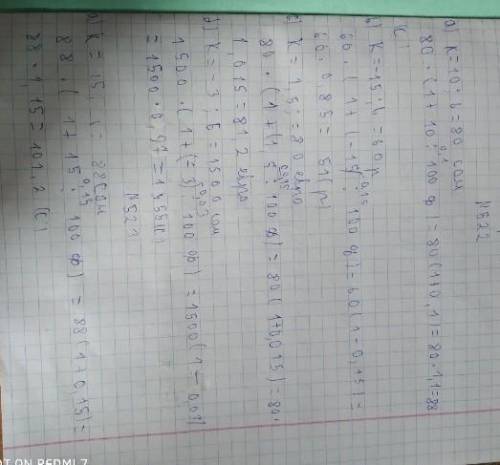 N522
а) K=10; b=80 сом
80·(1+10:100%)=80(1+0,1)=80·1,1=88
0,1
b) K=-15; b=60 р
60·(1+(-15):100%)=60(1-0,15)=
0,15
60·0,85=51 р
K=1,5; b=80 евро
80·(1+(1,5:100%)=80(1+0,015)=80·
0,015
1,015=81,2 евро
K=-3; b=1500 сом
1500·(1+(-3):100%)=1500(1-0,03)
0,03
=1500·0,97=1455
N523
а) K=15, b=88 сом
88·(1+15:100%)=88(1+0,15)=
0,15
88·1,15=101.2 (c)
ON REDMI 7